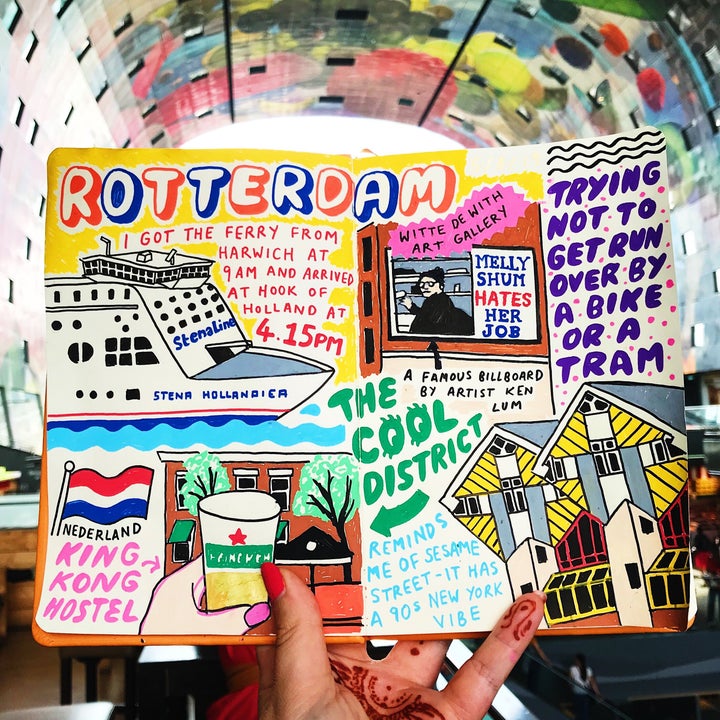 ROTTERDAM
I GOT THE FERRY FROM
HARWICH AT
9AM AND ARRIVED
AT HOOK OF
HOLLAND AT
4.15PM
StenaLine
STENA HOLLANDICA
NEDERLAND
KING
KONG
HOSTEL
HEINEKEN
WITTE DE WITH
ART GALLERY
MELLY
SHUM
HATES
HER
JOB
A FAMOUS BILLBOARD
BY ARTIST KEN
LUM
THE
COOL
DISTRICT
REMINDS
ME OF SESAME
STREET-IT HAS
A 90S NEW YORK
VIBE
TRYING
NOT TO
GET RUN
OVER BY
A BIKE
OR A
TRAM